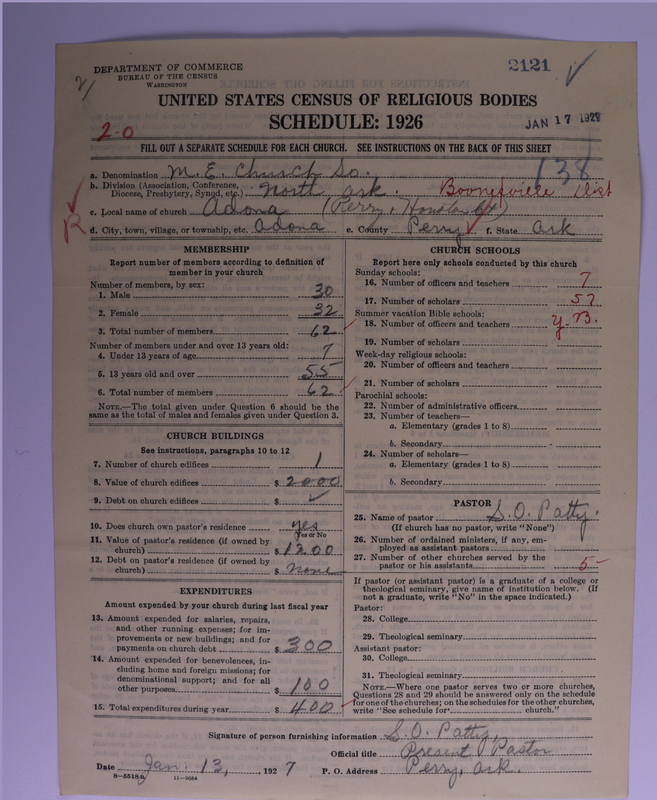 DEPARTMENT OF COMMERCE
BUREAU OF THE CENSUS
WASHINGTON
2121
UNITED STATES CENSUS OF RELIGIOUS BODIES
SCHEDULE: 1926
JAN 17 1928
2-0
FILL OUT A SEPARATE SCHEDULE FOR EACH CHURCH. SEE INSTRUCTIONS ON THE BACK OF THIS SHEET
138
a. Denomination M. E. Church So.
b. Division (Association, Conference, Diocese, Presbytery, Synod, etc.) North Ark. Booneville Dist
c. Local name of church Adona (Perry, Houston
d. City, town, village, or township, etc. Adona e. County Perry f. State Ark
R
MEMBERSHIP
Report number of members according to definition of
member in your church
Number of members, by sex:
1. Male 30
2. Female 32
3. Total number of members 62
Number of members under and over 13 years old:
4. Under 13 years of age 7
5. 13 years old and over 55
6. Total number of members 62
NOTE.—The total given under Question 6 should be the
same as the total of males and females given under Question 3.
CHURCH BUILDINGS
See instructions, paragraphs 10 to 12
7. Number of church edifices 1
8. Value of church edifices $ 2000
9. Debt on church edifices $
10. Does church own pastor's residence yes
Yes or No
11. Value of pastor's residence (if owned by
church) $ 1200
12. Debt on pastor's residence (if owned by
church) $ none
EXPENDITURES
Amount expended by your church during last fiscal year
13. Amount expended for salaries, repairs,
and other running expenses; for im-
provements or new buildings; and for
payments on church debt $ 300
14. Amount expended for benevolences, in-
cluding home and foreign missions; for
denominational support; and for all
other purposes $ 100
15. Total expenditures during year $ 400
CHURCH SCHOOLS
Report here only schools conducted by this church
Sunday schools:
16. Number of officers and teachers 7
17. Number of scholars 57
Summer vacation Bible schools:
18. Number of officers and teachers y.B.
19. Number of scholars
Week-day religious schools:
20. Number of officers and teachers
21. Number of scholars
Parochial schools:
22. Number of administrative officers
23. Number of teachers—
a. Elementary (grades 1 to 8)
b. Secondary
24. Number of scholars—
a. Elementary (grades 1 to 8)
b. Secondary
PASTOR
25. Name of pastor S. O. Patty.
(If church has no pastor, write "None")
26. Number of ordained ministers, if any, em-
ployed as assistant pastors
27. Number of other churches served by the
pastor or his assistants 5
If pastor (or assistant pastor) is a graduate of a college or
theological seminary, give name of institution below. (If
not a graduate, write "No" in the space indicated.)
Pastor:
28. College
29. Theological seminary
Assistant pastor:
30. College
31. Theological seminary
NOTE.—Where one pastor serves two or more churches,
Questions 28 and 29 should be answered only on the schedule
for one of the churches; on the schedules for the other churches,
write "See schedule for church."
Signature of person furnishing information S. O. Patty,
Official title Present Pastor
Date Jan. 13, 1927 P. O. Address Perry, Ark.
8-5518a 11-9064